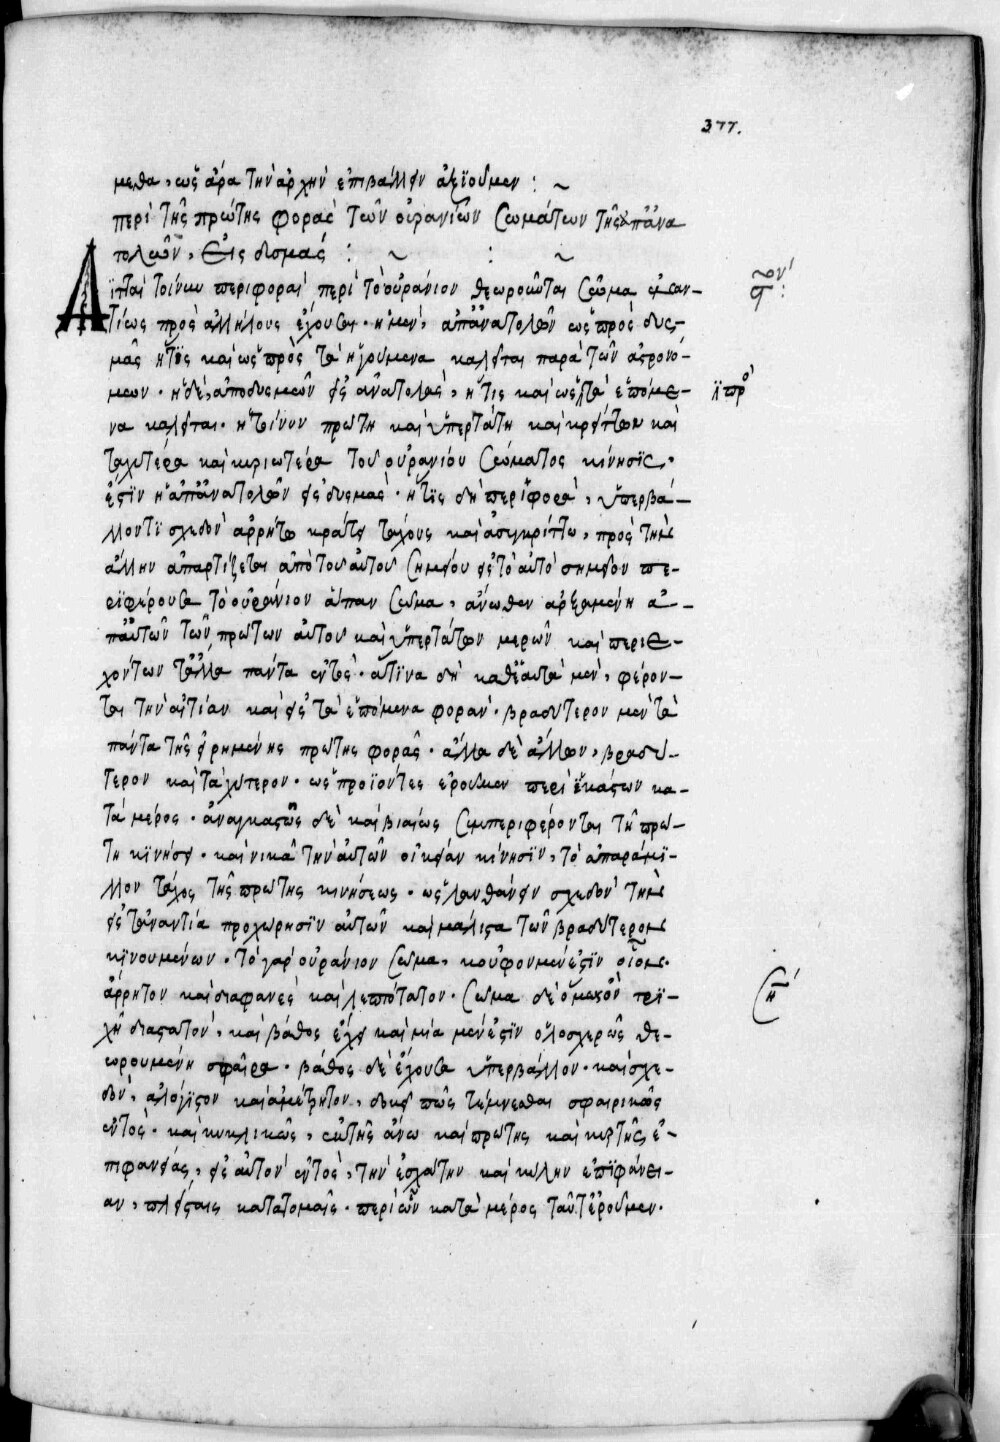 377.
μεθα, ὡς ἄρα τὴν ἀρχὴν ἐπιβάλλειν ἀξιοῦμεν : ~
περὶ τῆς πρώτης φορᾶς τῶν οὐρανίων σωμάτων τῆς ἀπ' ἀνα
τολῶν, εἰς δυσμάς : ~ : ~
Διτταὶ τοίνυν περιφοραὶ περὶ τὸ οὐράνιον θεωροῦνται σῶμα ἐναν-
τίως πρὸς ἀλλήλους ἔχουσαι · ἡ μὲν, ἀπ' ἀνατολῶν ὡς πρὸς δυσ-
μὰς ἥτις καὶ ὡς πρὸς τὰ ἡγούμενα καλεῖται παρὰ τῶν ἀστρονό-
μων · ἡ δὲ, ἀπὸ δυσμῶν εἰς ἀνατολὰς, ἥτις καὶ ὡς τὰ ἑπόμε-
να καλεῖται · ἡ τοίνυν πρώτη καὶ ὑπερτάτη καὶ κρείττων καὶ
ταχυτέρα καὶ κυριωτέρα τοῦ οὐρανίου σώματος κίνησις ·
ἐστὶν ἡ ἀπ' ἀνατολῶν εἰς δυσμάς · ἥτις δὴ περιφορὰ, ὑπερβάλ-
λοντι σχεδὸν ἀρρήτω κράτει τάχους καὶ ἀσυγκρίτω, πρὸς τὴν
ἄλλην ἀπαρτίζεται ἀπὸ τοῦ αὐτοῦ σημείου εἰς τὸ αὐτὸ σημεῖον πε-
ριφέρουσα τὸ οὐράνιον ἅπαν σῶμα, ἄνωθεν ἀρξαμένη ἀ-
π' αὐτῶν τῶν πρώτων αὐτοῦ καὶ ὑπερτάτων μερῶν καὶ περιε-
χόντων τἄλλα πάντα ἐντὸς · ἅτινα δὴ καθ' ἑαυτὰ μὲν, φέρον-
ται τὴν αἰτίαν καὶ εἰς τὰ ἑπόμενα φορὰν · βραδύτερον μὲν τὰ
πάντα τῆς εἰρημένης πρώτης φορᾶς · ἄλλα δὲ ἄλλων, βραδύ-
τερον καὶ ταχύτερον · ὡς προϊόντες ἐροῦμεν περὶ ἑκάστων κα-
τὰ μέρος · ἀναγκαστῶς δὲ καὶ βιαίως συμπεριφέρονται τῆ πρώ-
τη κινήσει · καὶ νικᾶ τὴν αὐτῶν οἰκείαν κίνησιν, τὸ ἀπαράμι-
λλον τάχος τῆς πρώτης κινήσεως · ὡς λανθάνειν σχεδὸν τὴν
εἰς τἀναντία προχώρησιν αὐτῶν καὶ μάλιστα τῶν βραδύτερον
κινουμένων · τὸ γὰρ οὐράνιον σῶμα, κοῦφον μέν ἐστιν οἷον
ἄρρητον καὶ διαφανὲς καὶ λεπτότατον · σῶμα δὲ ὅμως ὂν τρι-
χῆ διαστατὸν, καὶ βάθος ἔχει καὶ μία μέν ἐστιν ὁλοσχερῶς θε-
ωρουμένη σφαῖρα · βάθος δὲ ἔχουσα ὑπερβάλλον · καὶ σχε-
δὸν, ἀλόγιστον καὶ ἀμέτρητον, δοκεῖ πως τέμνεσθαι σφαιρικῶς
ἐντὸς · καὶ κυκλικῶς, ἐκ τῆς ἄνω καὶ πρώτης καὶ κυρτῆς ἐ-
πιφανείας, εἰς αὐτὸν ἐντὸς, τὴν ἐσχάτην καὶ κοίλην ἐπιφάνει-
αν, πλείσταις κατατομαῖς · περὶ ὧν κατὰ μέρος ταῦτ' ἐροῦμεν ·
ση